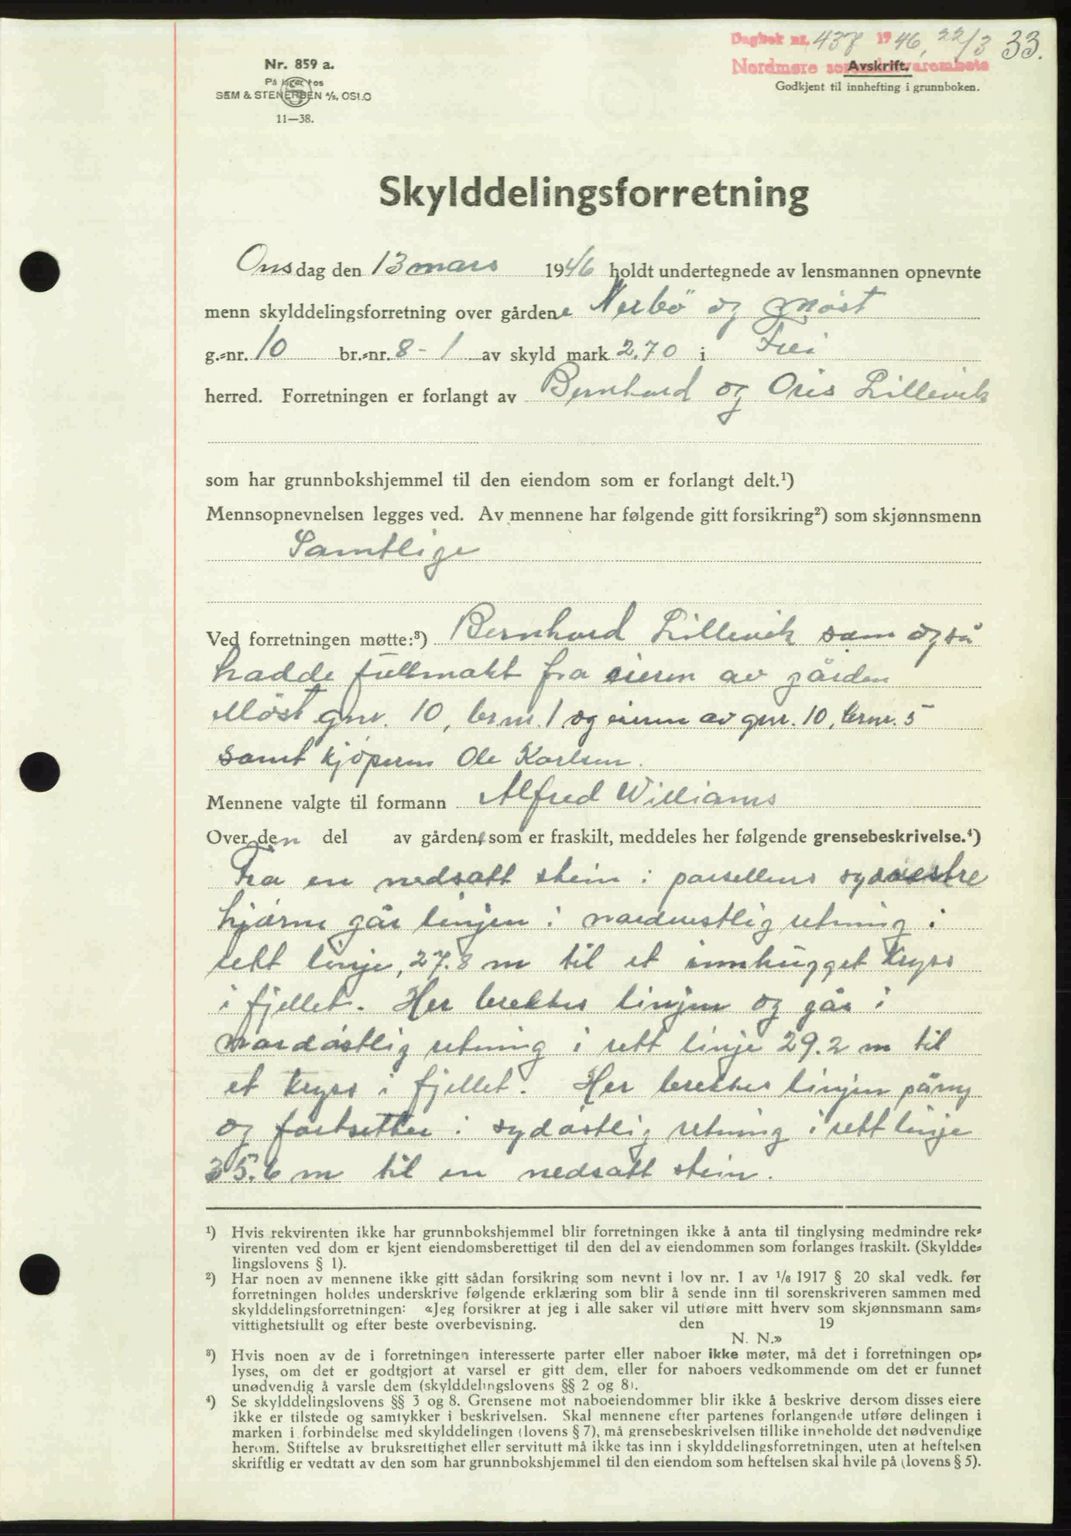 Dagbok nr. 437 1946, 22/3 33.
Nordmøre sorenskriverembete
Avskrift.
Godkjent til innhefting i grunnboken.
Nr. 859 a.
På lager hos
SEM & STENERSEN A/S, OSLO
11—38.
Skylddelingsforretning
Onsdag den 13 mars 1946 holdt undertegnede av lensmannen opnevnte
menn skylddelingsforretning over gårdene Nerbö og Møst
g.-nr. 10 br.-nr. 8 - 1 av skyld mark 2.70 i Frei
herred. Forretningen er forlangt av Bernhard og Oris Lillevik
som har grunnbokshjemmel til den eiendom som er forlangt delt.¹)
Mennsopnevnelsen legges ved. Av mennene har følgende gitt forsikring²) som skjønnsmenn
Samtlige
Ved forretningen møtte:³) Bernhard Lillevik som også
hadde fullmakt fra eieren av gården
Møst gnr. 10, br.nr. 1 og eieren av gnr. 10, brnr. 5
samt kjøperen Ole Karlsen.
Mennene valgte til formann Alfred Williams
Over den del av gården, som er fraskilt, meddeles her følgende grensebeskrivelse.⁴)
Fra en nedsatt stein i parsellens sydvestre
hjørne går linjen i nordvestlig retning i
rett linje, 27.8 m til et innhugget kryss
i fjellet. Her brekkes linjen og går i
nordøstlig retning i rett linje 29.2 m til
et kryss i fjellet. Her brekkes linjen påny
og fortsetter i sydøstlig retning i rett linje
35.6 m til en nedsatt stein.
¹) Hvis rekvirenten ikke har grunnbokshjemmel blir forretningen ikke å anta til tinglysing medmindre rek-
virenten ved dom er kjent eiendomsberettiget til den del av eiendommen som forlanges fraskilt. (Skyldde-
lingslovens § 1).
²) Har noen av mennene ikke gitt sådan forsikring som nevnt i lov nr. 1 av 1/6 1917 § 20 skal vedk. før
forretningen holdes underskrive følgende erklæring som blir å sende inn til sorenskriveren sammen med
skylddelingsforretningen: «Jeg forsikrer at jeg i alle saker vil utføre mitt hverv som skjønnsmann sam-
vittighetsfullt og efter beste overbevisning. den 19
N. N.»
³) Hvis noen av de i forretningen interesserte parter eller naboer ikke møter, må det i forretningen op-
lyses, om det er godtgjort at varsel er gitt dem, eller for naboers vedkommende om det er funnet
unødvendig å varsle dem (skylddelingslovens §§ 2 og 8).
⁴) Se skylddelingslovens §§ 3 og 8. Grensene mot naboeiendommer blir ikke å beskrive dersom disses eiere
ikke er tilstede og samtykker i beskrivelsen. Skal mennene efter partenes forlangende utføre delingen i
marken i forbindelse med skylddelingen (lovens § 7), må grensebeskrivelsen tillike inneholde det nødvendige
herom. Stiftelse av bruksrettighet eller servitutt må ikke tas inn i skylddelingsforretningen, uten at heftelsen
skriftlig er vedtatt av den som har grunnbokshjemmel til den eiendom som heftelsen skal hvile på (lovens § 5).